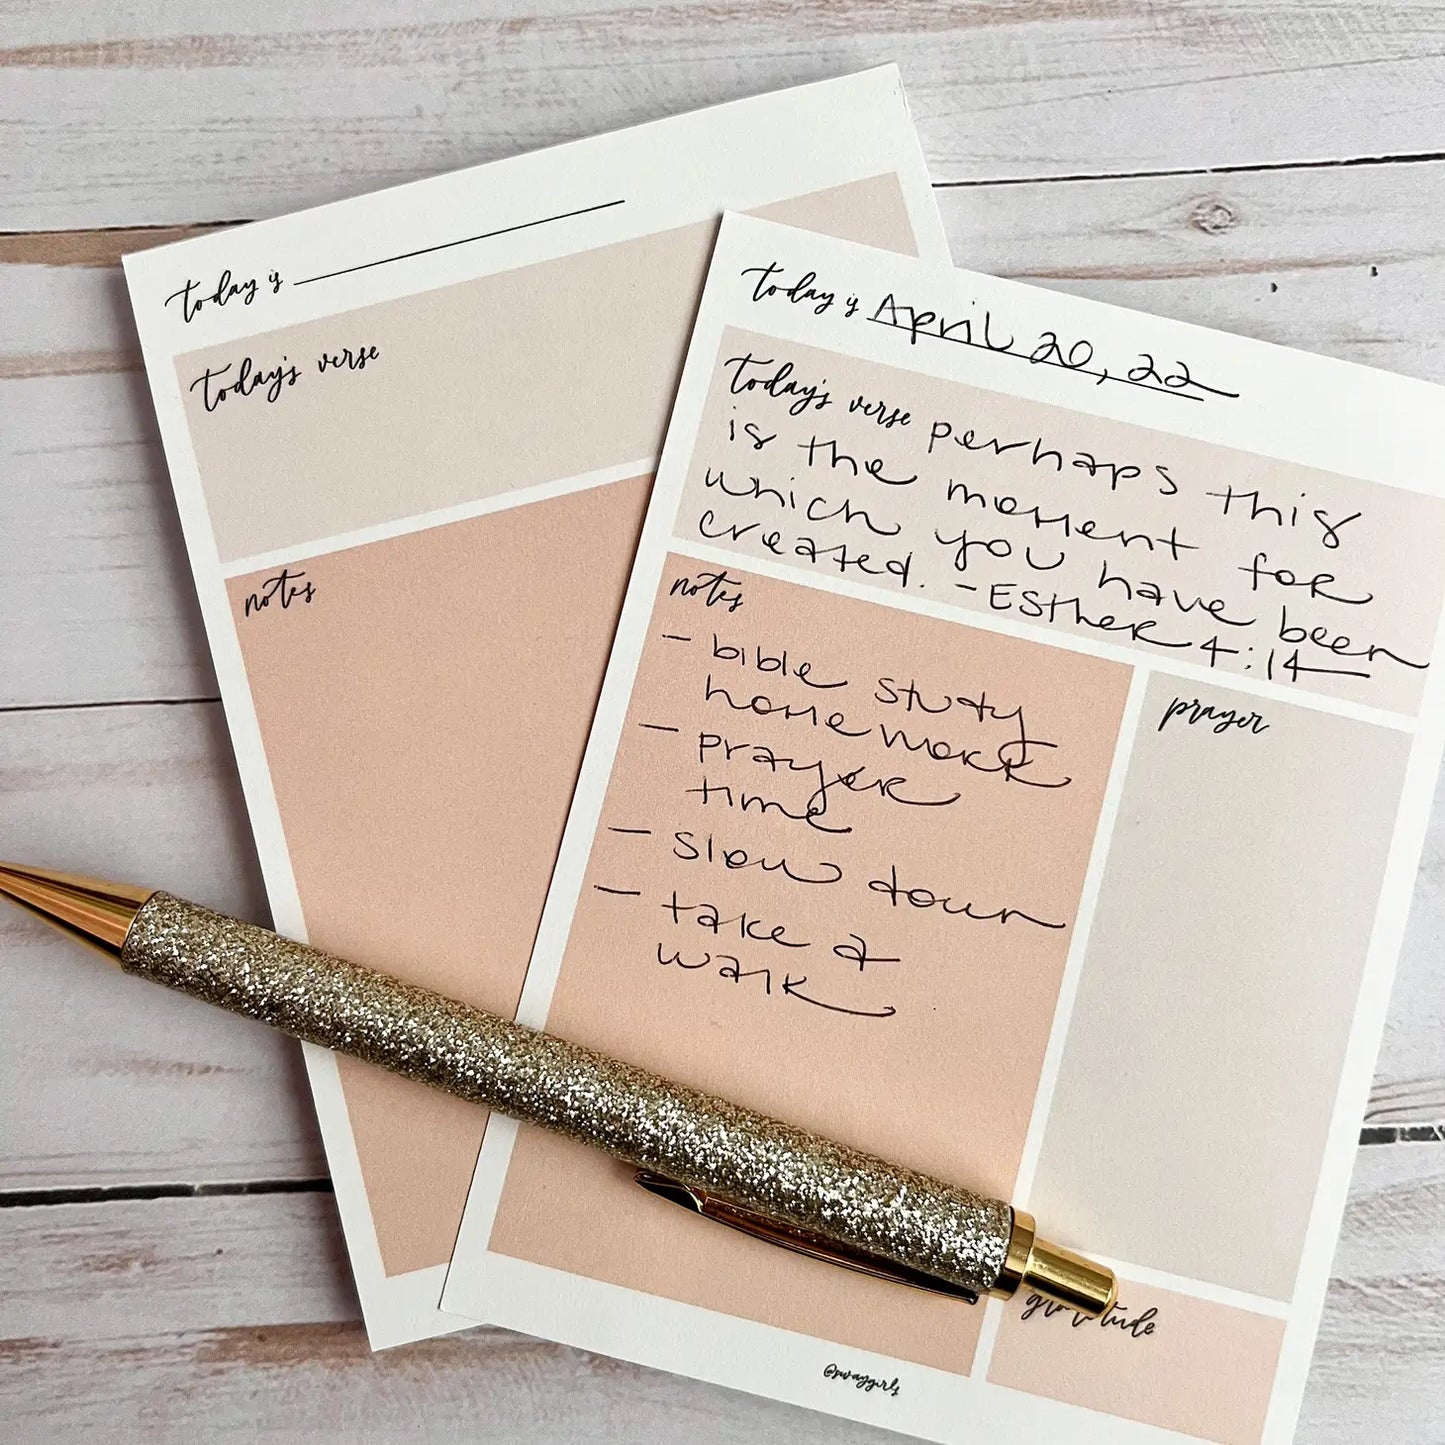 today is
today's verse
notes
today is April 20, 22
today's verse perhaps this
is the moment for
which you have been
created. - Esther 4:14
notes
- bible study
homework
- prayer
time
- slow down
- take a
walk
prayer
gratitude
@swaygirls